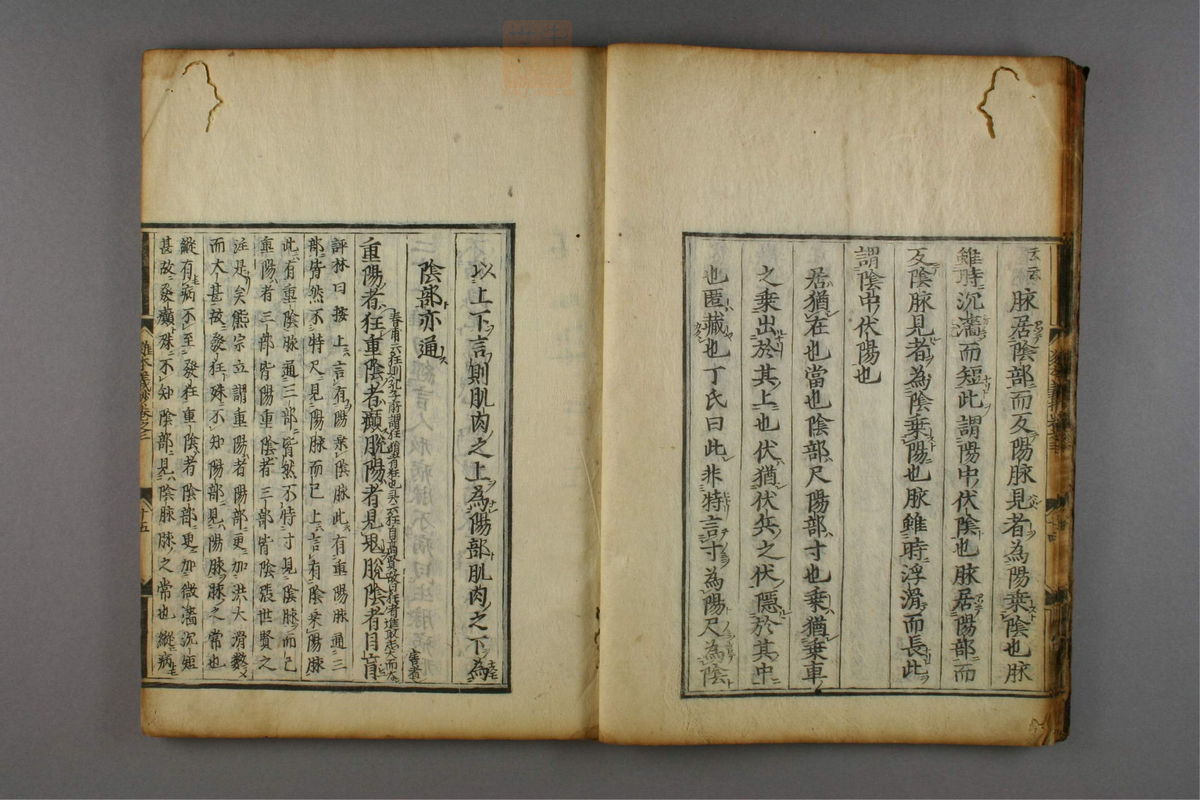 脉居陰部而反陽脉見者為陽乗陰也脉
雖時沉濇而短此謂陽中伏陰也脉居陽部而
反陰脉見者為陰乗陽也脉雖時浮滑而長此
謂陰中伏陽也
居猶在也當也陰部尺陽部寸也乗猶乗車
之乗出於其上也伏猶伏兵之伏隱於其中
也匿藏也丁氏曰此非特言寸為陽尺為陰
以上下言則肌肉之上為陽部肌肉之下為
陰部亦通
重陽者狂重陰者癲脫陽者見鬼脫陰者目盲
評林曰按上言有陽乗陰脉此有重陽脉通三
部皆然不特尺見陽脉而已上言有陰乗陽脉
此有重陰脉通三部皆然不特寸見陰脉而已
重陽者三部皆陽重陰者三部皆陰張世賢之
註是矣熊宗立謂重陽者陽部更加洪大滑數
而大甚故發狂殊不知陽部見陽脉脉之常也
縱有病不至發狂重陰者陰部更加微濇沉短
甚故發癲殊不知陰部見陰脉脉之常也縱病
十五